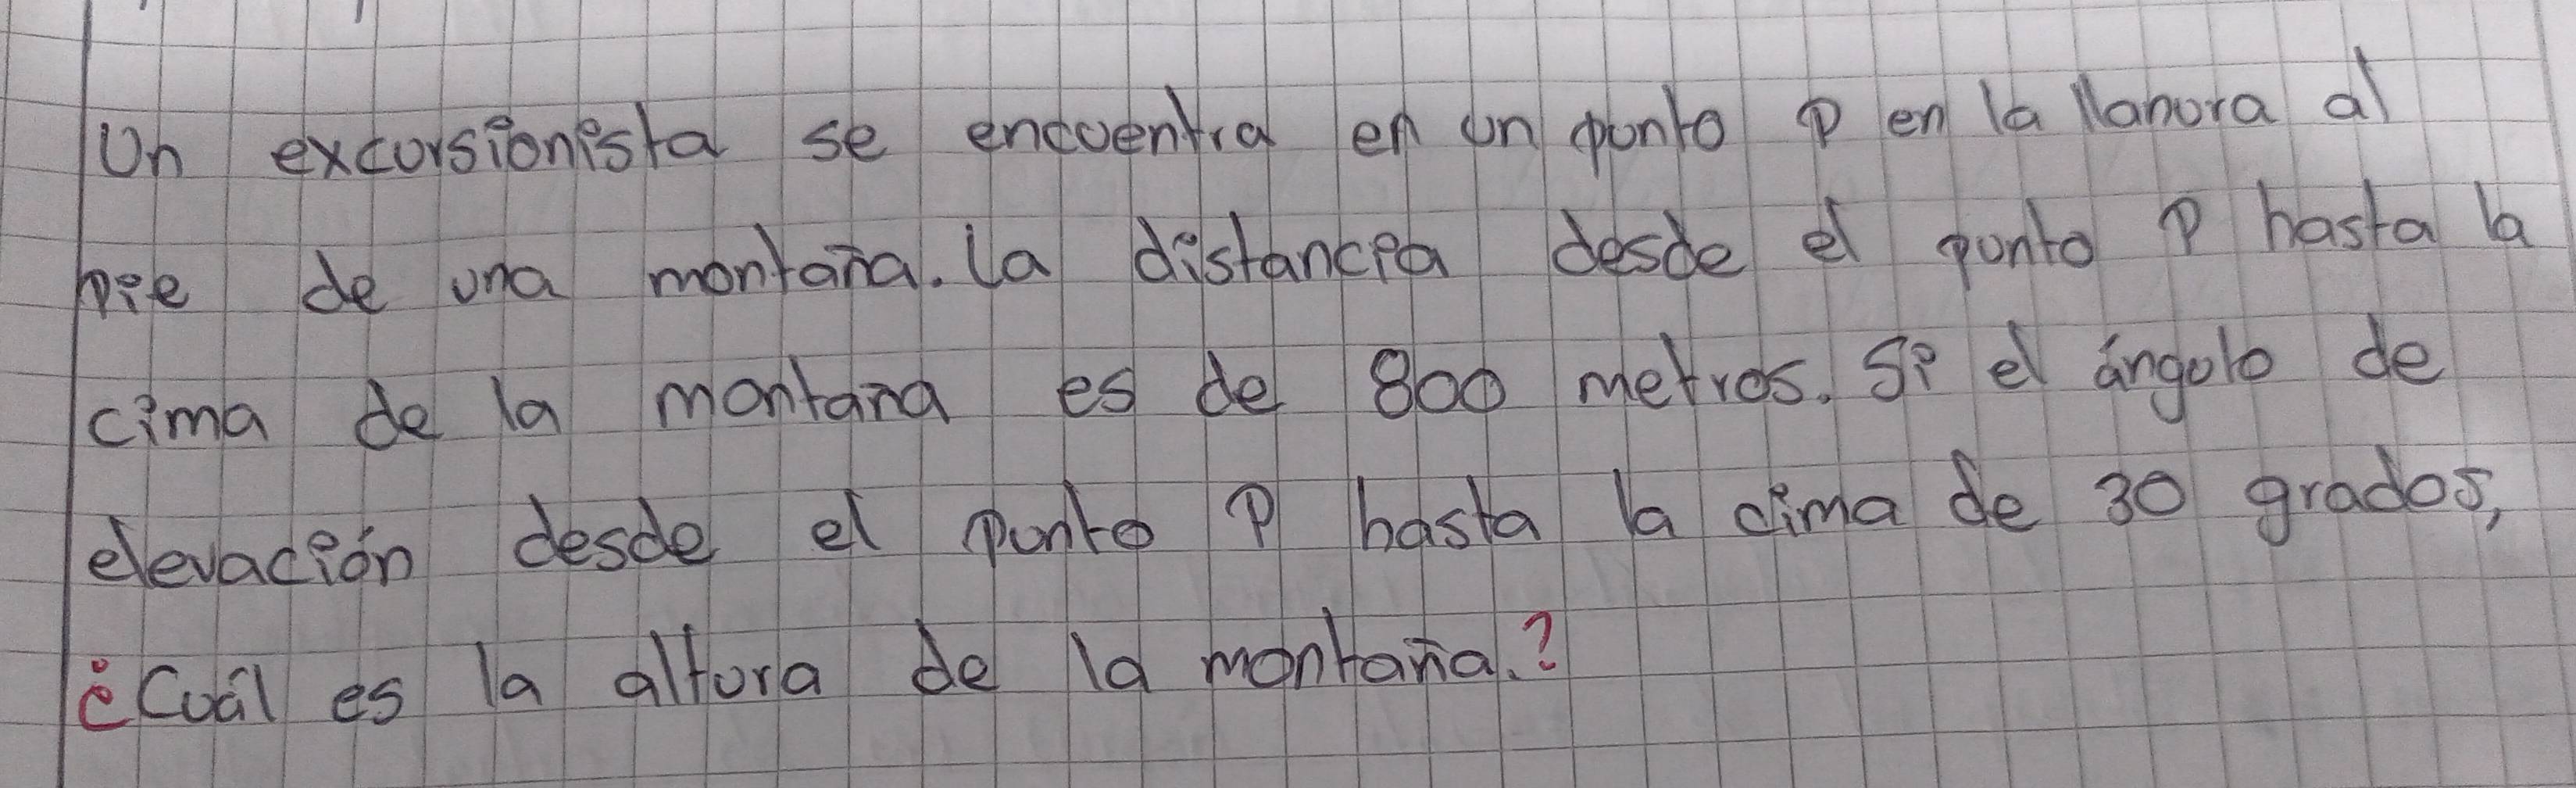 Un excursionista se encuentra en un punto P en la llanura al
pie de una montaña. La distancia desde el punto P hasta la
cima de la montaña es de 800 metros. Si el ángulo de
elevación desde el punto P hasta la cima de 30 grados,
¿Cuál es la altura de la montaña.?